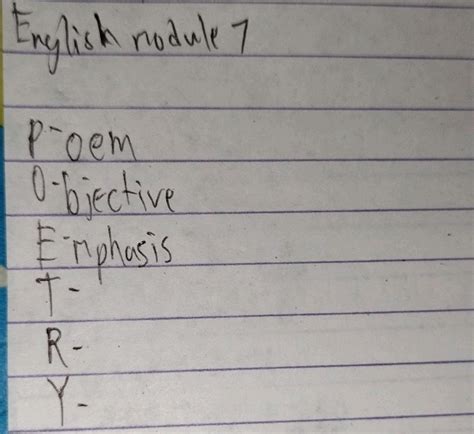 English module 7
P-oem
O-bjective
E-mphasis
T-
R-
Y-